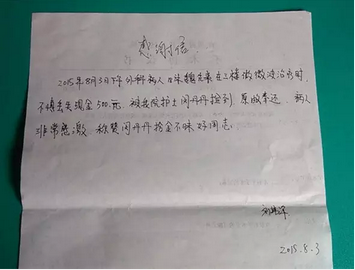 感谢信
2015年8月3日下午外科病人口味颗先喜在上楼做微波治疗时,
不慎丢失现金500元,被我院护士闵丹丹捡到,原数奉还,病人
非常感激,称赞闵丹丹拾金不昧好同志。
2015.8.3